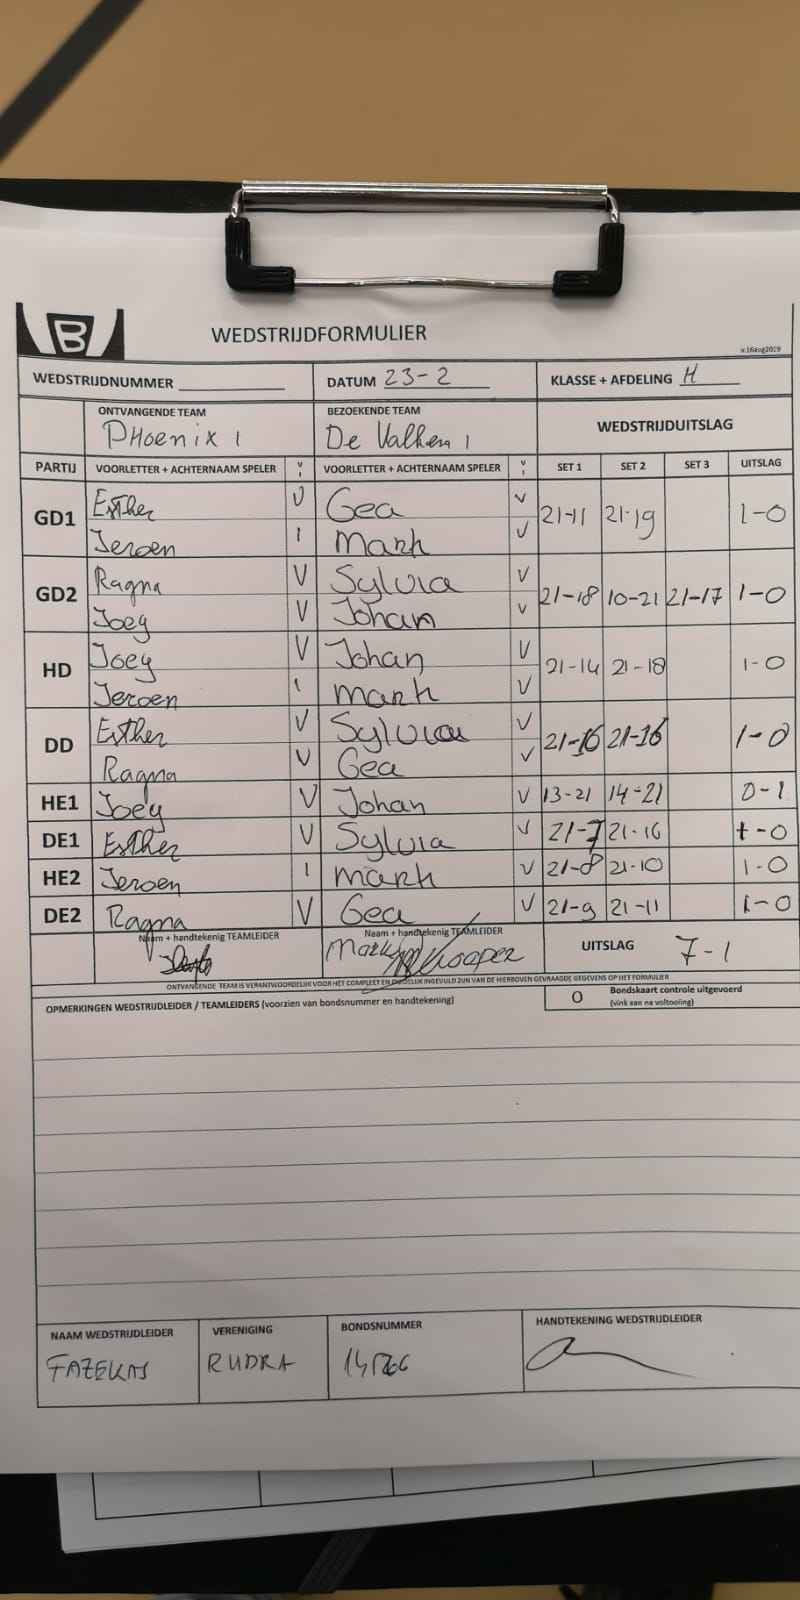 B
WEDSTRIJDFORMULIER
v.16aug2019
WEDSTRIJDNUMMER DATUM 23-2 KLASSE + AFDELING H
ONTVANGENDE TEAM BEZOEKENDE TEAM WEDSTRIJDUITSLAG
PHoenix 1 De Valken 1
PARTIJ VOORLETTER + ACHTERNAAM SPELER V I VOORLETTER + ACHTERNAAM SPELER V I SET 1 SET 2 SET 3 UITSLAG
GD1 Esther V Gea V 21-11 21-19 1-0
Jeroen I Mark V
GD2 Ragna V Sylvia V 21-18 10-21 21-17 1-0
Joey V Johan V
HD Joey V Johan V 21-14 21-18 1-0
Jeroen I Mark V
DD Esther V Sylvia V 21-16 21-16 1-0
Ragna V Gea V
HE1 Joey V Johan V 13-21 14-21 0-1
DE1 Esther V Sylvia V 21-7 21-16 1-0
HE2 Jeroen I Mark V 21-8 21-10 1-0
DE2 Ragna V Gea V 21-9 21-11 1-0
Naam + handtekenig TEAMLEIDER Naam + handtekenig TEAMLEIDER UITSLAG 7-1
Mark
ONTVANGENDE TEAM IS VERANTWOORDELIJK VOOR HET COMPLEET EN DUIDELIJK INGEVULD ZIJN VAN DE HIERBOVEN GEVRAAGDE GEGEVENS OP HET FORMULIER
OPMERKINGEN WEDSTRIJDLEIDER / TEAMLEIDERS (voorzien van bondsnummer en handtekening) O Bondskaart controle uitgevoerd
(vink aan na voltooiing)
NAAM WEDSTRIJDLEIDER VERENIGING BONDSNUMMER HANDTEKENING WEDSTRIJDLEIDER
FAZEKAS RUDRA